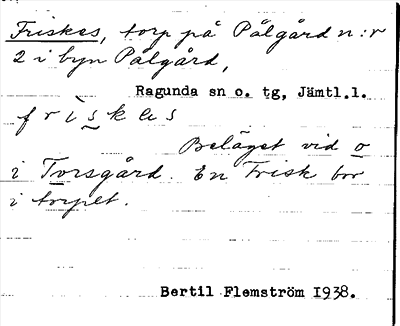 Friskes, torp på Pålgård n:r
2 i byn Pålgård,
Ragunda sn o. tg, Jämtl.l.
Beläget vid o
i Torsgård. En Frisk bor
i torpet.
Bertil Flemström 1938.